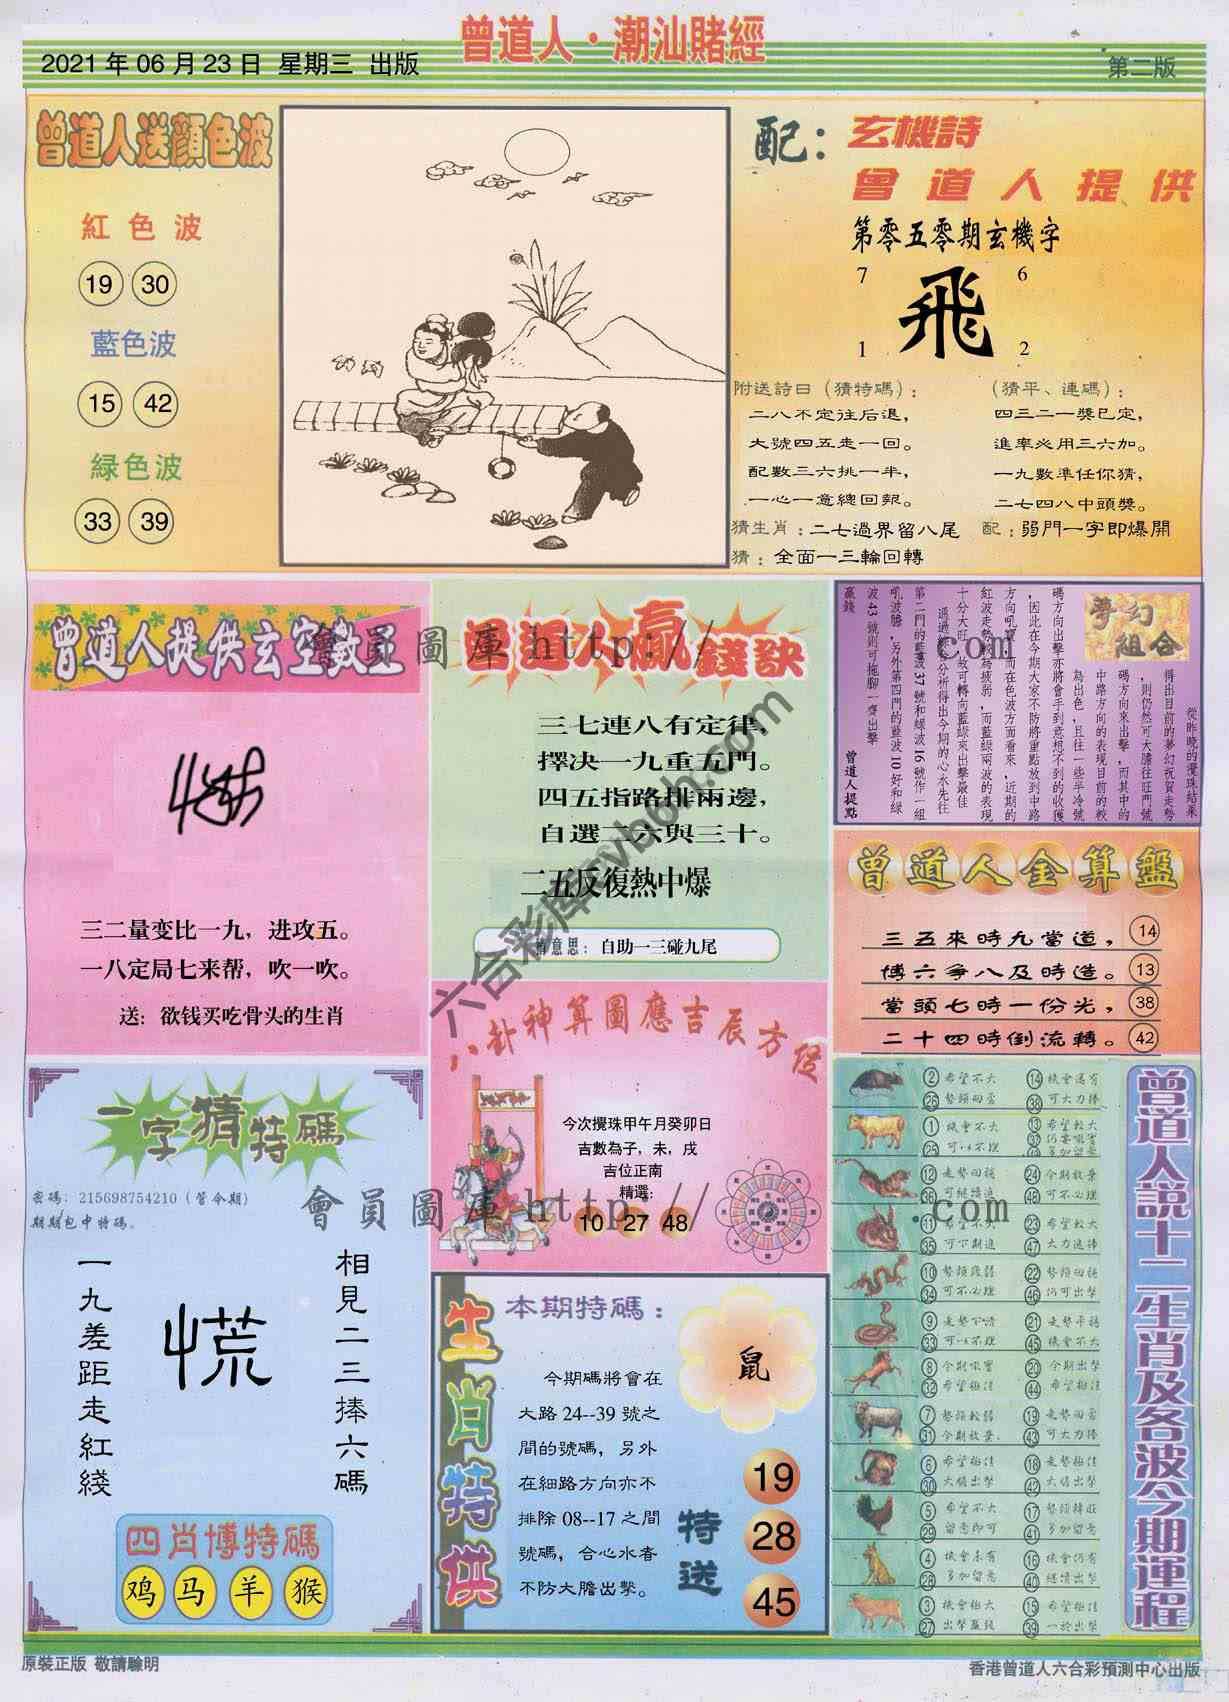 曾道人·潮汕賭經
2021 年 06 月 23 日 星期三 出版
第二版
曾道人送顏色波
紅色波
19 30
藍色波
15 42
緑色波
33 39
配:
玄機詩
曾道人提供
第零五零期玄機字
7 6
飛
1 2
附送詩曰(猜特碼):
二八不定往后退,
大號四五走一回。
配數三六挑一半,
一心一意總回報。
(猜平、連碼):
四三二一獎已定,
進率必用三六加。
一九數準任你猜,
二七四八中頭獎。
猜生肖:二七過界留八尾 配:弱門一字即爆開
猜:全面一三輪回轉
曾道人提供玄空數王
三二量变比一九,进攻五。
一八定局七来帮,吹一吹。
送:欲钱买吃骨头的生肖
曾道人贏錢訣
三七連八有定律
擇决一九重五門。
四五指路排兩邊,
自選二六與三十。
二五反復熱中爆
曾意思:自助一三碰九尾
夢幻組合
從昨晚的攪珠結果
得出目前的夢幻祝賀走勢
,則仍然可大膽往旺門號
碼方向來出擊,而其中的
中路方向的表現目前的較
為出色,且往一些半冷號
碼方向出擊亦將會手到意想不到的收獲
,因此在今期大家不防將重點放到中路
方向吼寶,而在色波方面看來,近期的
紅波走勢較為疲弱,而藍綠兩波的表現
十分大旺,故可轉向藍綠來出擊最佳
通過綜合分析得出今期的心水先往
第二門的藍波37號和綠波16號作一組
吼波膽,另外第四門的藍波10好和綠
波43號則可拖腳一齊出擊
贏錢
曾道人提點
曾道人金算盤
三五來時九當道, 14
博六爭八及時造。 13
當頭七時一份光, 38
二十四時倒流轉。 42
八卦神算圖應吉辰方位
今次攪珠甲午月癸卯日
吉數為子,未,戌
吉位正南
精選:
10 27 48
一字猜特碼
密碼:215698754210(管令期)
期期包中特碼。
相見二三捧六碼
慌
一九差距走紅綫
四肖博特碼
鸡 马 羊 猴
生肖特供
本期特碼:
鼠
今期碼將會在
大路 24--39 號之
間的號碼,另外
在細路方向亦不
排除 08--17 之間
號碼,合心水春
不防大膽出擊。
特送
19
28
45
曾道人説十二生肖及各波今期運程
2 希望不大 14 機會滿有
26 勢頭回歪 38 可大力捧
1 機會不大 13 希望較大
25 可以不理
12 走勢回穩 24 今期放棄
36 可継續追 48 可不必理
11 希望不大 23 希望較大
35 可下期追 47 大力追捧
10 勢頭疲弱 22 勢頭回穩
34 可不必理 46 仍可出擊
9 走勢下滑 21 走勢平穩
33 可以不理 45 機會不大
8 今期吼實 20 今期出擊
32 希望極佳 44 希望極佳
7 勢頭較弱 19 走勢回歪
31 今期放棄 43 可大力捧
6 希望極佳 18 走勢極佳
30 大膽出擊 42 大膽出擊
5 希望不大 17 勢頭轉旺
29 留意即可 41 多加留意
4 機會未有 16 機會仍有
28 多加留意 40 継續出擊
3 機會極大 15 希望極佳
27 出擊贏錢 39 一於出擊
會員圖庫 http:// .com
會員圖庫 http:// .com
原裝正版 敬請騐明
香港曾道人六合彩預測中心出版